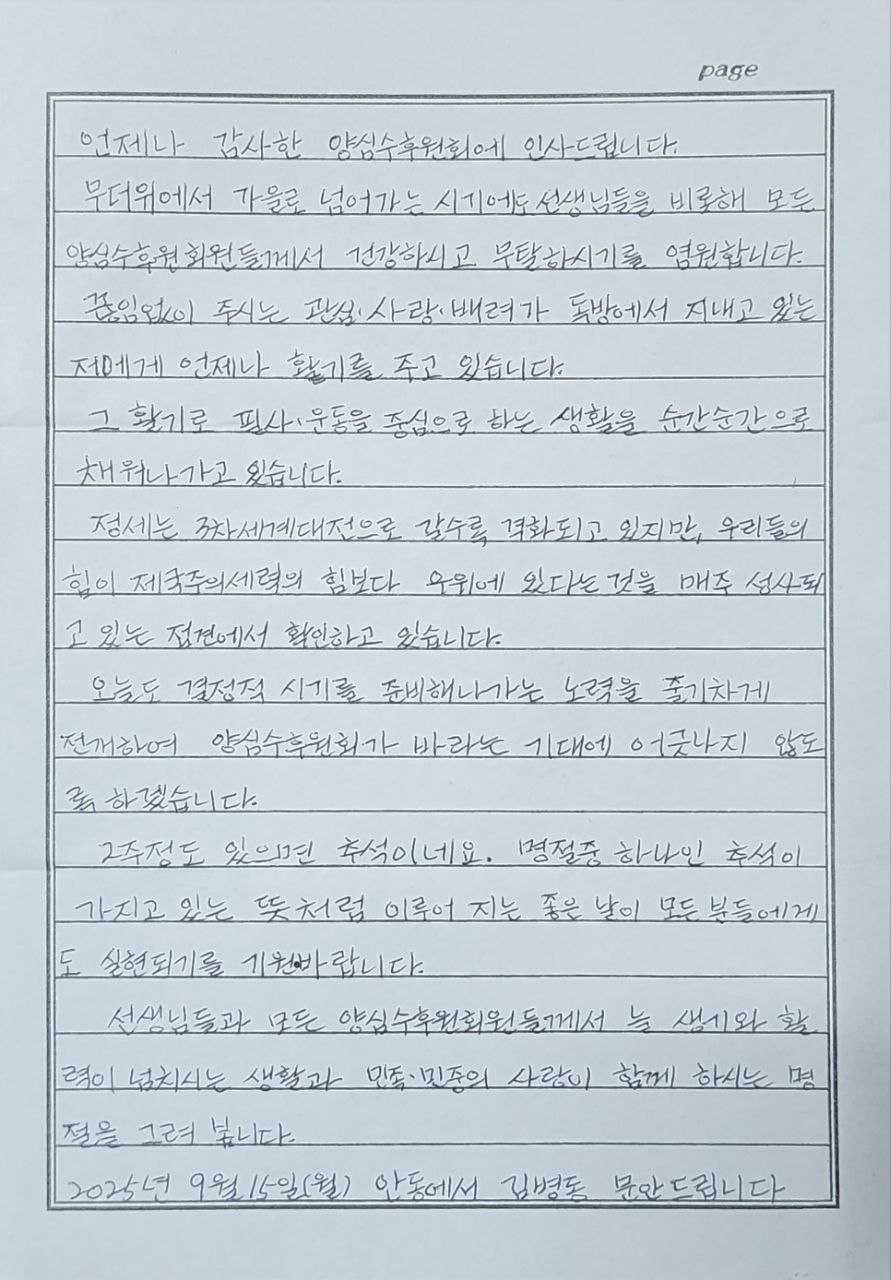 page
언제나 감사한 양심수후원회에 인사드립니다.
무더위에서 가을로 넘어가는 시기에도 선생님들을 비롯해 모든
양심수후원회원들께서 건강하시고 무탈하시기를 염원합니다.
끊임없이 주시는 관심·사랑·배려가 독방에서 지내고 있는
저에게 언제나 활기를 주고 있습니다.
그 활기로 필사·운동을 중심으로 하는 생활을 순간순간으로
채워나가고 있습니다.
정세는 3차세계대전으로 갈수록 격화되고 있지만, 우리들의
힘이 제국주의세력의 힘보다 우위에 있다는 것을 매주 성사되
고 있는 접견에서 확인하고 있습니다.
오늘도 결정적 시기를 준비해나가는 노력을 줄기차게
전개하여 양심수후원회가 바라는 기대에 어긋나지 않도
록 하겠습니다.
2주정도 있으면 추석이네요. 명절중 하나인 추석이
가지고 있는 뜻처럼 이루어 지는 좋은 날이 모든분들에게
도 실현되기를 기원바랍니다.
선생님들과 모든 양심수후원회원들께서 늘 생기와 활
력이 넘치시는 생활과 민족·민중의 사랑이 함께 하시는 명
절을 그려 봅니다.
2025년 9월 15일(월) 안동에서 김병동 문안드립니다